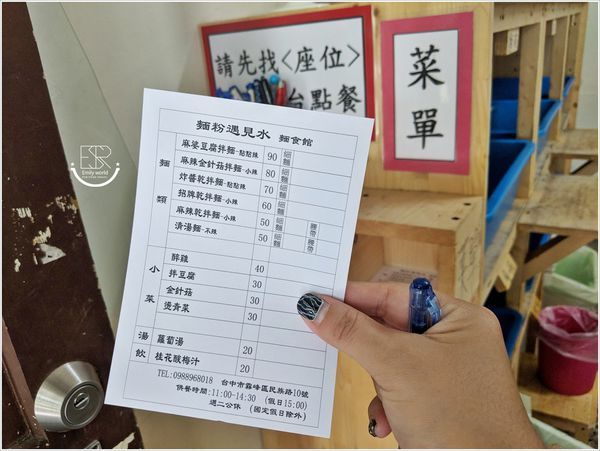 請先找<座位>
台點餐
菜單
ESR
Emily world
麵粉遇見水 麵食館
麵類
麻婆豆腐拌麵-點點辣 90 細麵
麻辣金針菇拌麵-小辣 80 細麵
炸醬乾拌麵-點點辣 70 細麵
招牌乾拌麵-小辣 60 細麵
麻辣乾拌麵-小辣 50 細麵 腰帶
清湯麵-不辣 50 細麵 腰帶
小菜
醉雞 40
拌豆腐 30
金針菇 30
燙青菜 30
湯飲
蘿蔔湯 20
桂花酸梅汁 20
TEL:0988968018 台中市霧峰區民族路10號
供餐時間:11:00-14:30 (假日15:00)
週二公休 (國定假日除外)